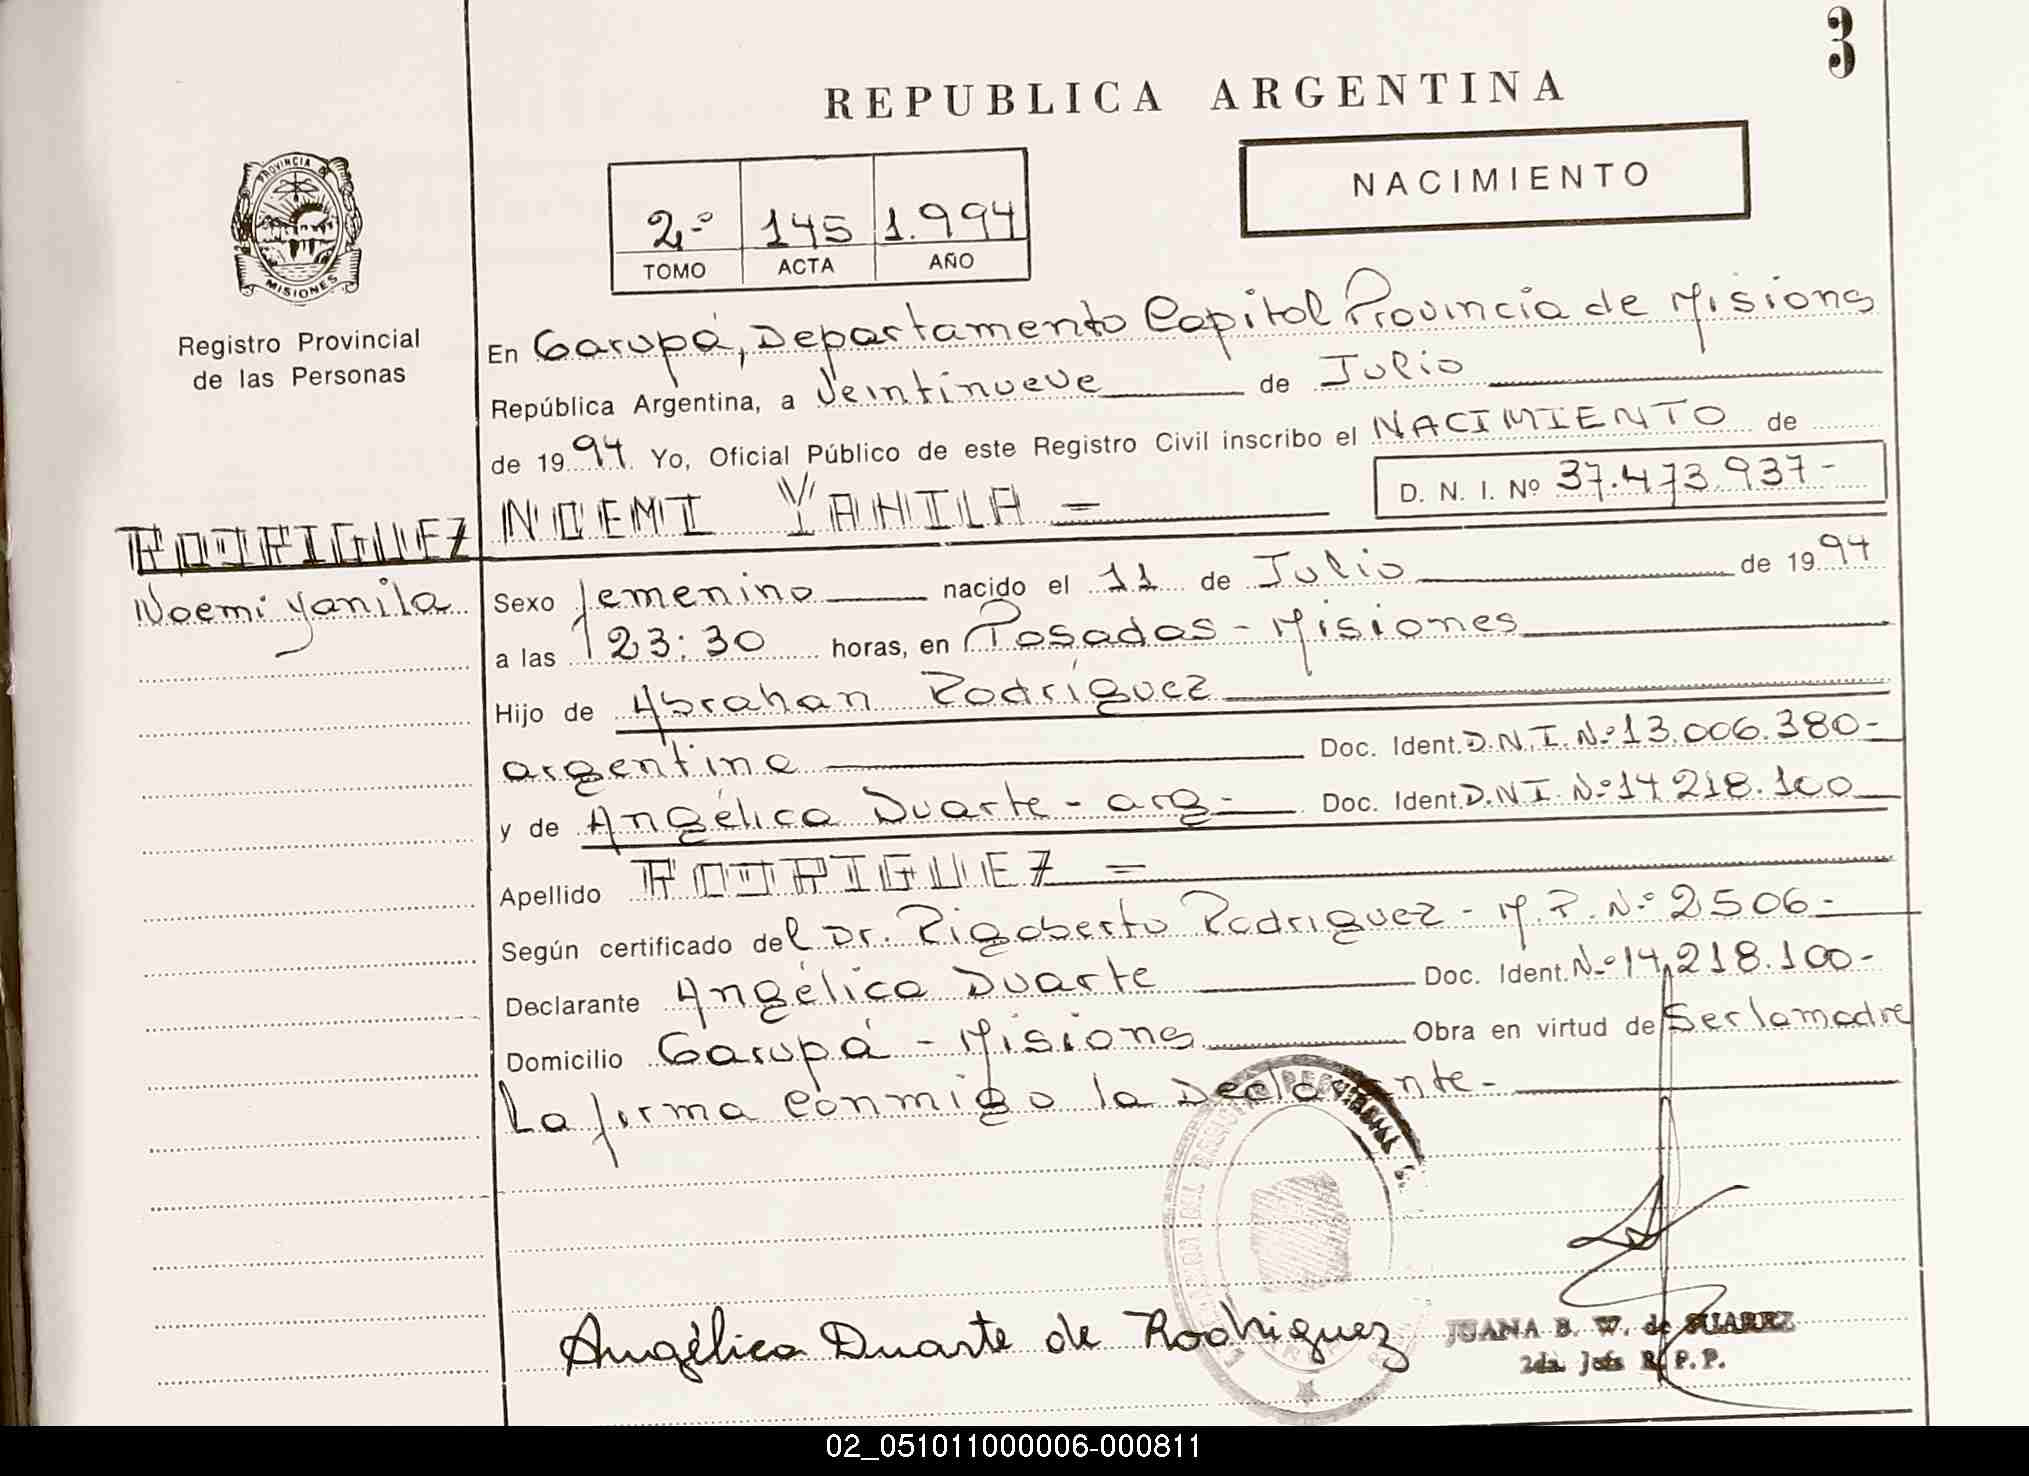 3
REPUBLICA ARGENTINA
NACIMIENTO
2º 145 1.994
TOMO ACTA AÑO
PROVINCIA DE
MISIONES
Registro Provincial
de las Personas
En Garupá, Departamento Capital Provincia de Misiones
República Argentina, a Veintinueve de Julio
de 1994. Yo, Oficial Público de este Registro Civil inscribo el NACIMIENTO de
D. N. I. Nº 37.473.937-
NOEMI YANILA =
RODRIGUEZ
Noemi Yanila
Sexo femenino nacido el 11 de Julio de 1994
a las 23:30 horas, en Posadas - Misiones
Hijo de Abrahan Rodríguez
argentino Doc. Ident. D.N.I. Nº 13.006.380-
y de Angélica Duarte - arg - Doc. Ident. D.N.I. Nº 14.218.100
Apellido RODRIGUEZ =
Según certificado del Dr. Rigoberto Rodriguez - M.P. Nº 2506-
Declarante Angélica Duarte Doc. Ident. Nº 14.218.100-
Domicilio Garupá - Misiones Obra en virtud de Ser la madre
La firma conmigo la Declarante-
Angélica Duarte de Rodriguez
JUANA B. W. de SUAREZ
2da. Jefe R.P.P.
02_051011000006-000811